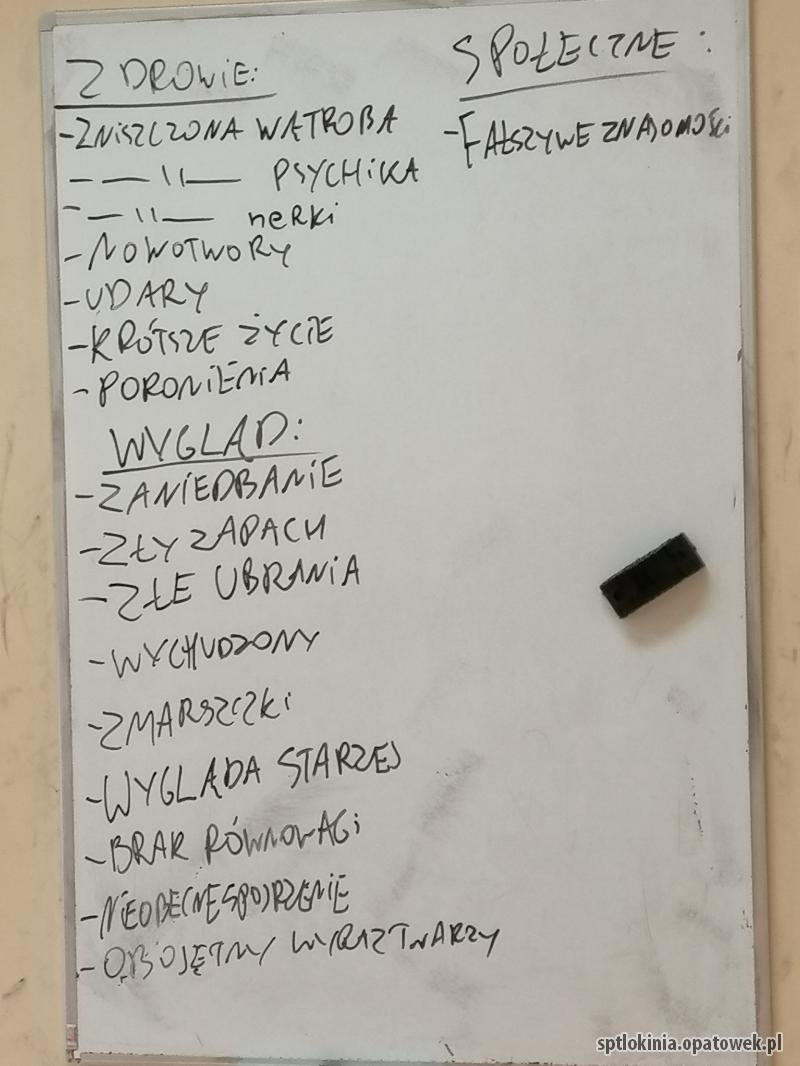 ZDROWIE:
-ZNISZCZONA WĄTROBA
- —"— PSYCHIKA
- —"— neRKi
-NOWOTWORY
-UDARY
-KRÓTSZE ŻYCIE
-PORONIENIA
WYGLĄD:
-ZANIEDBANIE
-ZŁY ZAPACH
-ZŁE UBRANIA
-WYCHUDZONY
-ZMARSZCZKI
-WYGLĄDA STARZEJ
-BRAK RÓWNOWAGi
-NIEOBECNE SPOJRZENIE
-OBOJĘTNY WYRAZ TWARZY
SPOŁECZNE:
-FAŁSZYWE ZNAJOMOŚCi
sptlokinia.opatowek.pl